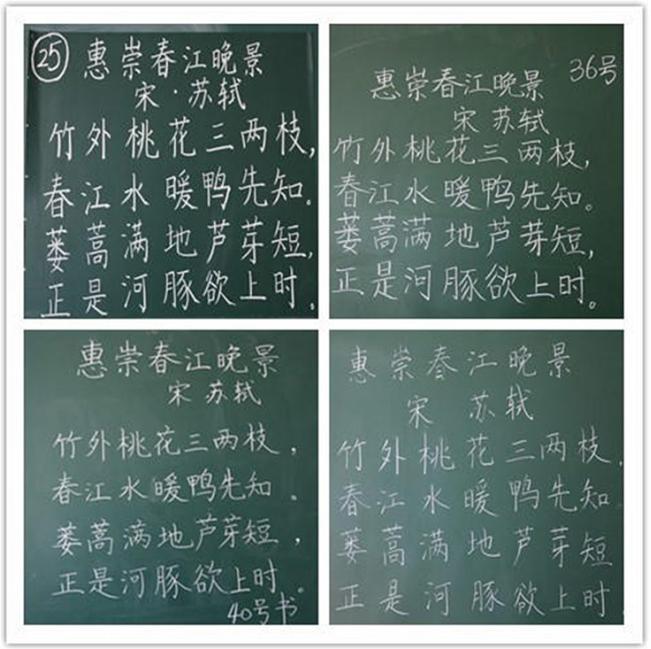 25 惠崇春江晚景
宋·苏轼
竹外桃花三两枝,
春江水暖鸭先知。
蒌蒿满地芦芽短,
正是河豚欲上时。
惠崇春江晚景 36号
宋 苏轼
竹外桃花三两枝,
春江水暖鸭先知。
蒌蒿满地芦芽短,
正是河豚欲上时。
惠崇春江晚景
宋 苏轼
竹外桃花三两枝,
春江水暖鸭先知。
蒌蒿满地芦芽短,
正是河豚欲上时。
40号书
惠崇春江晚景
宋 苏轼
竹外桃花三两枝,
春江水暖鸭先知
蒌蒿满地芦芽短
正是河豚欲上时